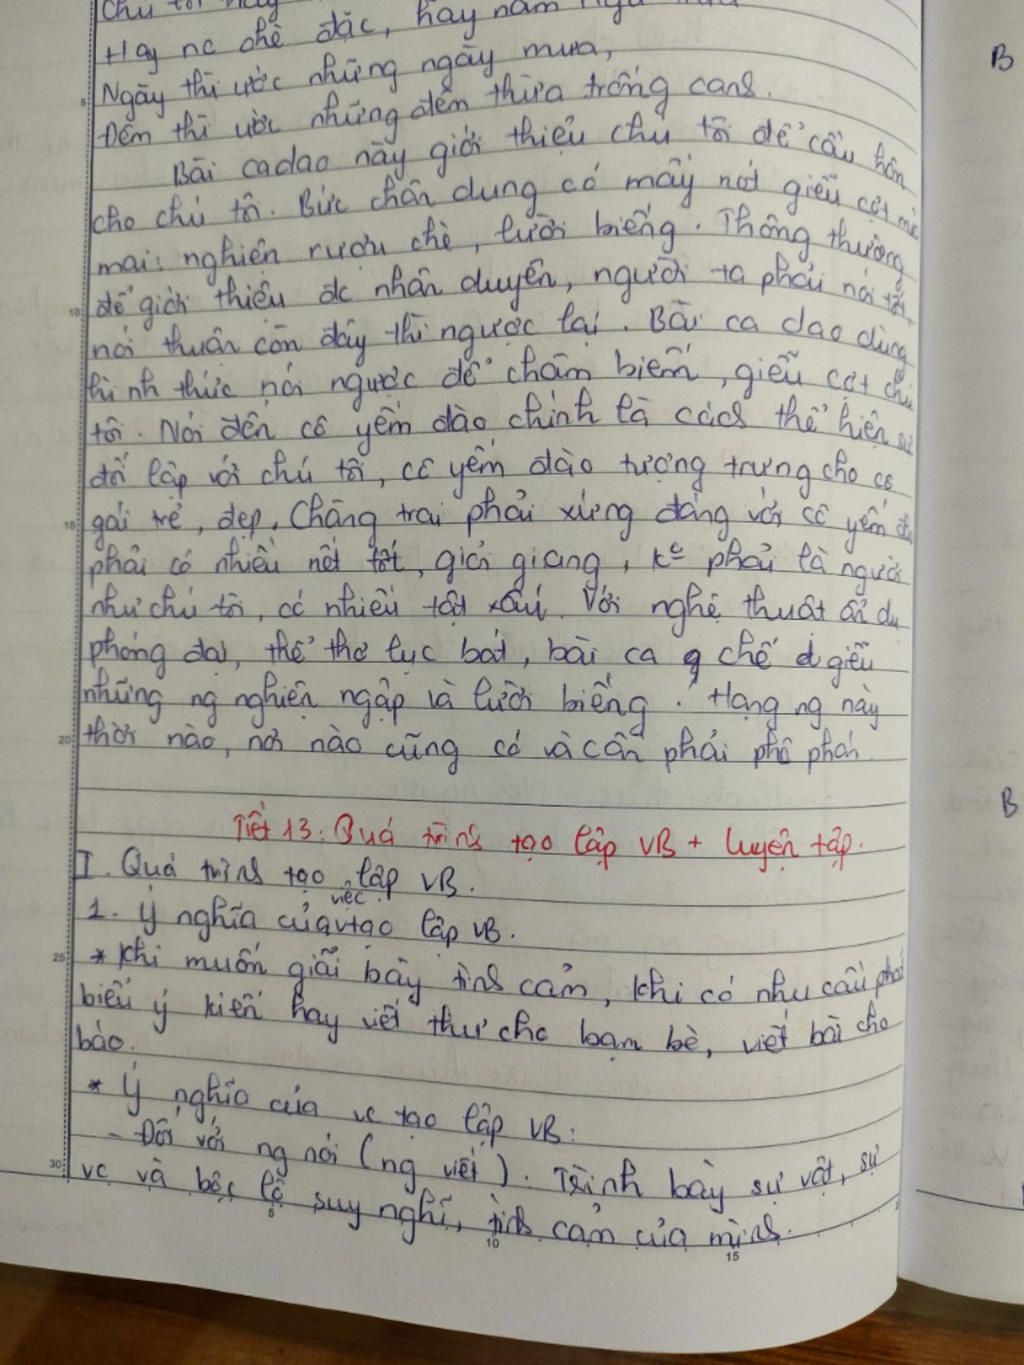 Chú tôi hay
Hay nc chè đặc, hay nằm ngủ trưa
Ngày thì ước những ngày mưa,
Đêm thì ước những đêm thừa trống canh.
Bài ca dao này giới thiệu chú tôi để cầu hôn
cho chú tôi. Bức chân dung có mấy nét giễu cợt mỉa
mai: nghiện rượu chè, lười biếng. Thông thường
để giới thiệu đc nhân duyên, người ta phải nói tốt,
nói thuận còn đây thì ngược lại. Bài ca dao dùng
hình thức nói ngược để châm biếm, giễu cợt chú
tôi. Nói đến cô yếm đào chính là cách thể hiện sự
đối lập với chú tôi, cô yếm đào tượng trưng cho cô
gái trẻ, đẹp. Chàng trai phải xứng đáng với cô yếm đào
phải có nhiều nét tốt, giỏi giang, ko phải là người
như chú tôi, có nhiều tật xấu. Với nghệ thuật ẩn dụ
phóng đại, thể thơ lục bát, bài ca chế giễu
những ng nghiện ngập và lười biếng. Hạng ng này
thời nào, nơi nào cũng có và cần phải phê phán.
Tiết 13: Quá trình tạo lập VB + luyện tập.
I. Quá trình tạo lập VB.
1. Ý nghĩa của việc tạo lập VB.
* Khi muốn giãi bày tình cảm, khi có nhu cầu phát
biểu ý kiến hay viết thư cho bạn bè, viết bài cho
báo.
* Ý nghĩa của vc tạo lập VB:
- Đối với ng nói (ng viết). Trình bày sự vật, sự
vc và bộc lộ suy nghĩ, tình cảm của mình.
B
B